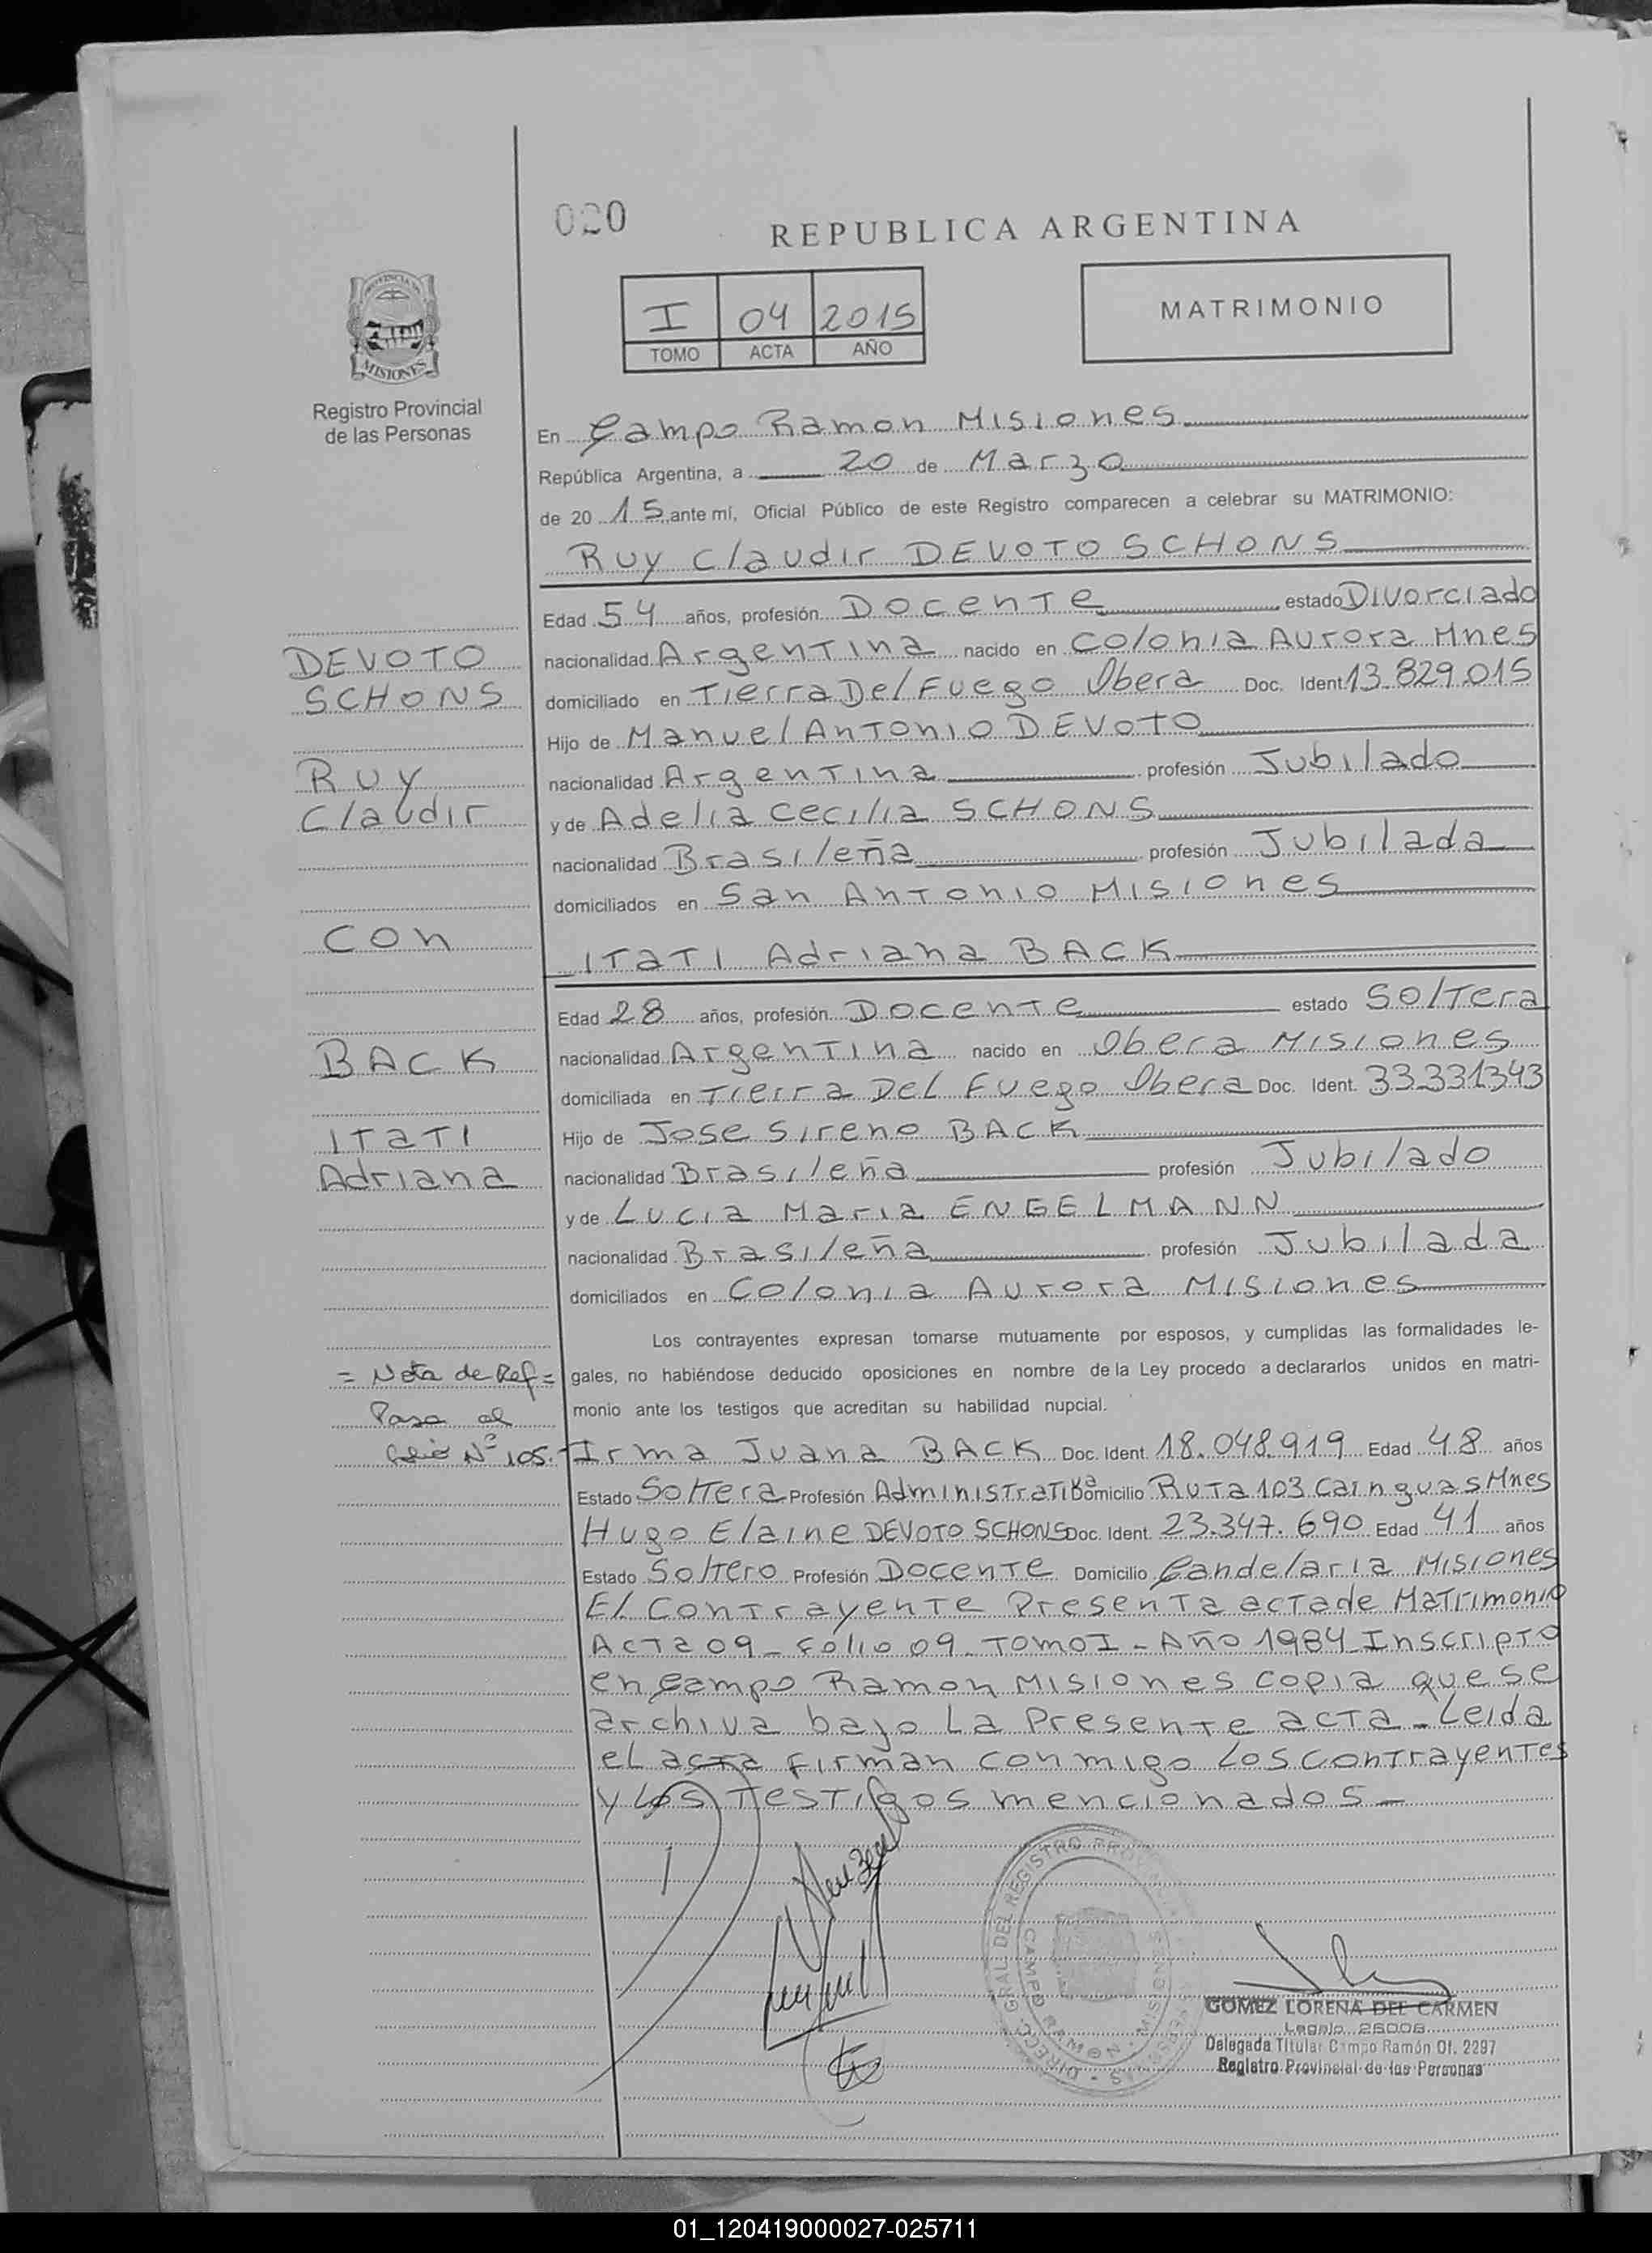 020
REPUBLICA ARGENTINA
PROVINCIA DE
MISIONES
Registro Provincial
de las Personas
I 04 2015
TOMO ACTA AÑO
MATRIMONIO
En Campo Ramon Misiones
República Argentina, a 20 de Marzo
de 20 15 ante mí, Oficial Público de este Registro comparecen a celebrar su MATRIMONIO:
Ruy Claudir DEVOTO SCHONS
Edad 54 años, profesión Docente estado Divorciado
nacionalidad Argentina nacido en Colonia Aurora Mnes
domiciliado en Tierra Del Fuego Obera Doc. Ident 13.829.015
Hijo de Manuel Antonio DEVOTO
nacionalidad Argentina profesión Jubilado
y de Adelia Cecilia SCHONS
nacionalidad Brasileña profesión Jubilada
domiciliados en San Antonio Misiones
Itati Adriana BACK
Edad 28 años, profesión Docente estado Soltera
nacionalidad Argentina nacido en Obera Misiones
domiciliada en Tierra Del Fuego Obera Doc. Ident. 33331343
Hijo de Jose Sireno BACK
nacionalidad Brasileña profesión Jubilado
y de Lucia Maria ENGELMANN
nacionalidad Brasileña profesión Jubilada
domiciliados en Colonia Aurora Misiones
Los contrayentes expresan tomarse mutuamente por esposos, y cumplidas las formalidades le-
gales, no habiéndose deducido oposiciones en nombre de la Ley procedo a declararlos unidos en matri-
monio ante los testigos que acreditan su habilidad nupcial.
Irma Juana BACK Doc. Ident. 18.048.919 Edad 48 años
Estado Soltera Profesión Administrativa Domicilio Ruta 103 Cainguas Mnes
Hugo Elaine DEVOTO SCHONS Doc. Ident. 23.347.690 Edad 41 años
Estado Soltero Profesión Docente Domicilio Candelaria Misiones
El Contrayente Presenta acta de Matrimonio
Acta 09 - Folio 09 - Tomo I - Año 1984 Inscripto
en Campo Ramon Misiones copia que se
archiva bajo La Presente acta - Leida
el acta firman conmigo Los contrayentes
y Los Testigos mencionados -
DEVOTO
SCHONS
Ruy
Claudir
con
BACK
Itati
Adriana
= Nota de Ref =
Pasa al
folio Nº 105.
CAMPO RAMON - MISIONES
GOMEZ LORENA DEL CARMEN
Legajo 26006
Delegada Titular Campo Ramón Of. 2297
Registro Provincial de las Personas
01_120419000027-025711